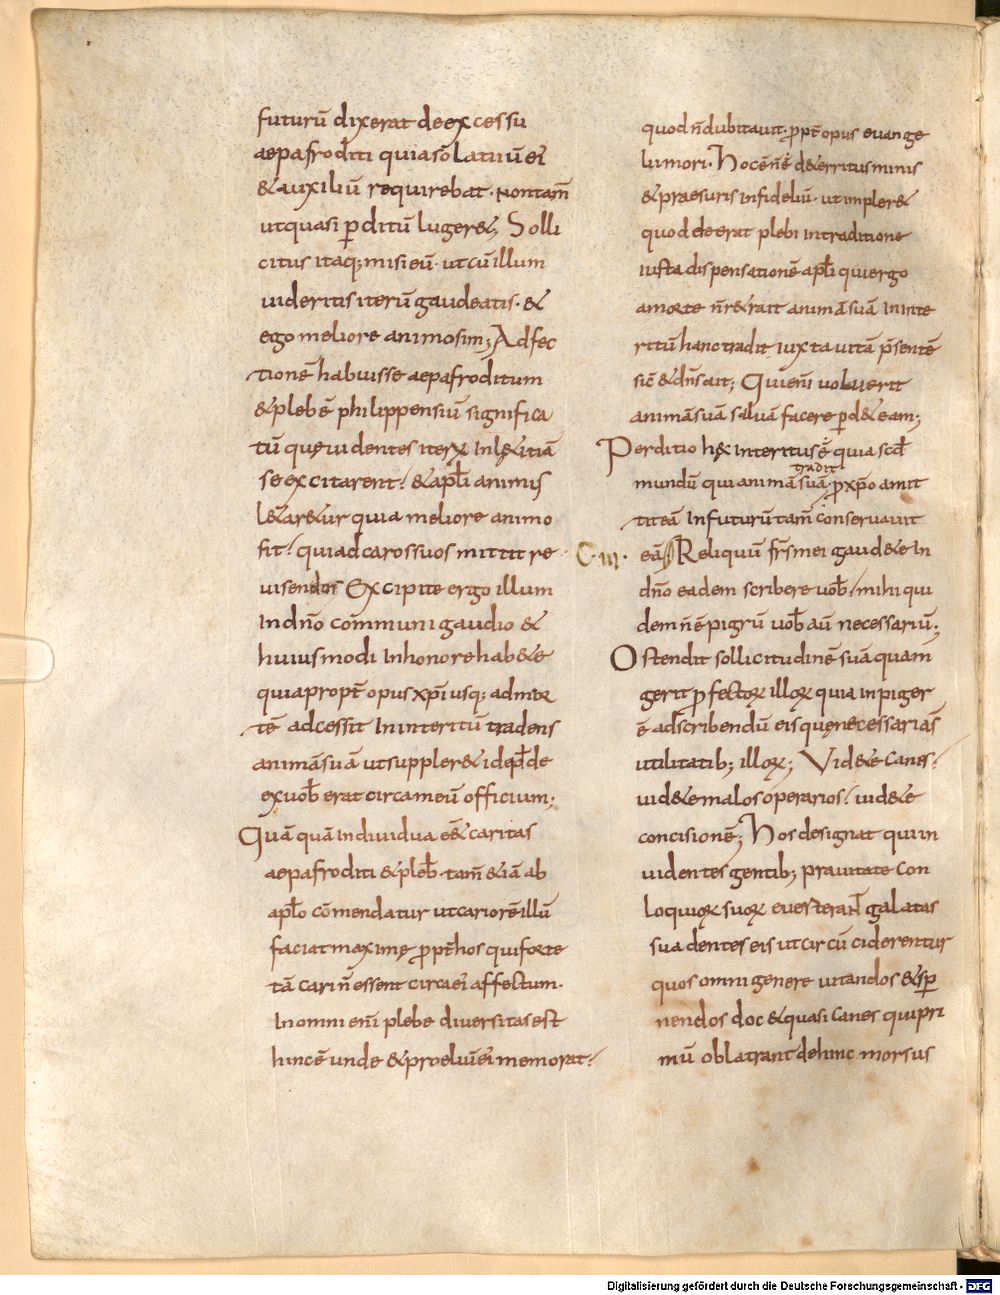 futurū dixerat de excessu
aepafroditi quia solatiū ei
& auxiliū requirebat. Non tam̄
ut quasi ꝑditū luger&; Solli
citus itaq; misi eū. ut cū illum
uideritis iterū gaudeatis. &
ego meliore animo sim; Adfec
tionē habuisse aepafroditum
& plebē philippensiū significa
tū quę uidentes iterꝝ In l&itiā
se excitarent! & apłi animis
l&ar&ur quia meliore animo
fit! qui ad caros suos mittit re
uisendos Excipite ergo illum
In dn̄o cōmuni gaudio &
huiusmodi In honore hab&e
quia propt̄ opus xp̄i usq; ad mor
tē adcessit In interitū tradens
animā suā ut suppler& id qđ de
ex uob̄ erat circa meū officium;
Quā quā indiuidua e&̄ caritas
aepafroditi & pleb̄ tam̄ &iā ab
apło cōmendatur ut cariorē illū
faciat maxime ꝓpt̄ hos qui forte
tā cari n̄ essent circa ei affectum.
In omni eni plebe diuersitas est
hinc ē unde & proeliū ei memorat!
quod n̄ dubitauit. ꝓpt̄ opus euange
lii mori. Hoc ē n̄ ē d&erritus minis
& praesuris infideliū. ut impler&
quod deerat plebi in traditione
iusta dispensationē apłi qui ergo
a morte n̄ r&rait animā suā In inte
ritū hanc tradit iuxta uitā p̄sentē
sic̄ & dn̄s ait; Qui eni uoluerit
animā suā saluā facere ꝑd&eam;
Perditio hęc interitus ē quia scđ
tradit
mundū qui animā suā ꝓ xp̄o amit
tit eā In futurū tam̄ conseruauit
C. III.
eā Reliquū fr̄s mei gaud&e In
dn̄o eadem scribere uob̄! mihi qui
dem n̄ ē pigrū uob̄ aū necessariū;
Ostendit sollicitudinē suā quam
gerit ꝓ fectoꝝ illoꝝ quia inpiger
ē ad scribendū eis quę necessaria s̄
utilitatib; illoꝝ; Vid&e canes!
uid&e malos operarios! uid&e
concisionē; Hos designat qui in
uidentes gentib; prauitate con
loquioꝝ suoꝝ euerteran̄t galatas
suadentes eis ut circū ciderentur
quos omni genere uitandos & sꝑ
nendos doc& quasi canes qui pri
mū oblatrant dehinc morsus
Digitalisierung gefördert durch die Deutsche Forschungsgemeinschaft - DFG